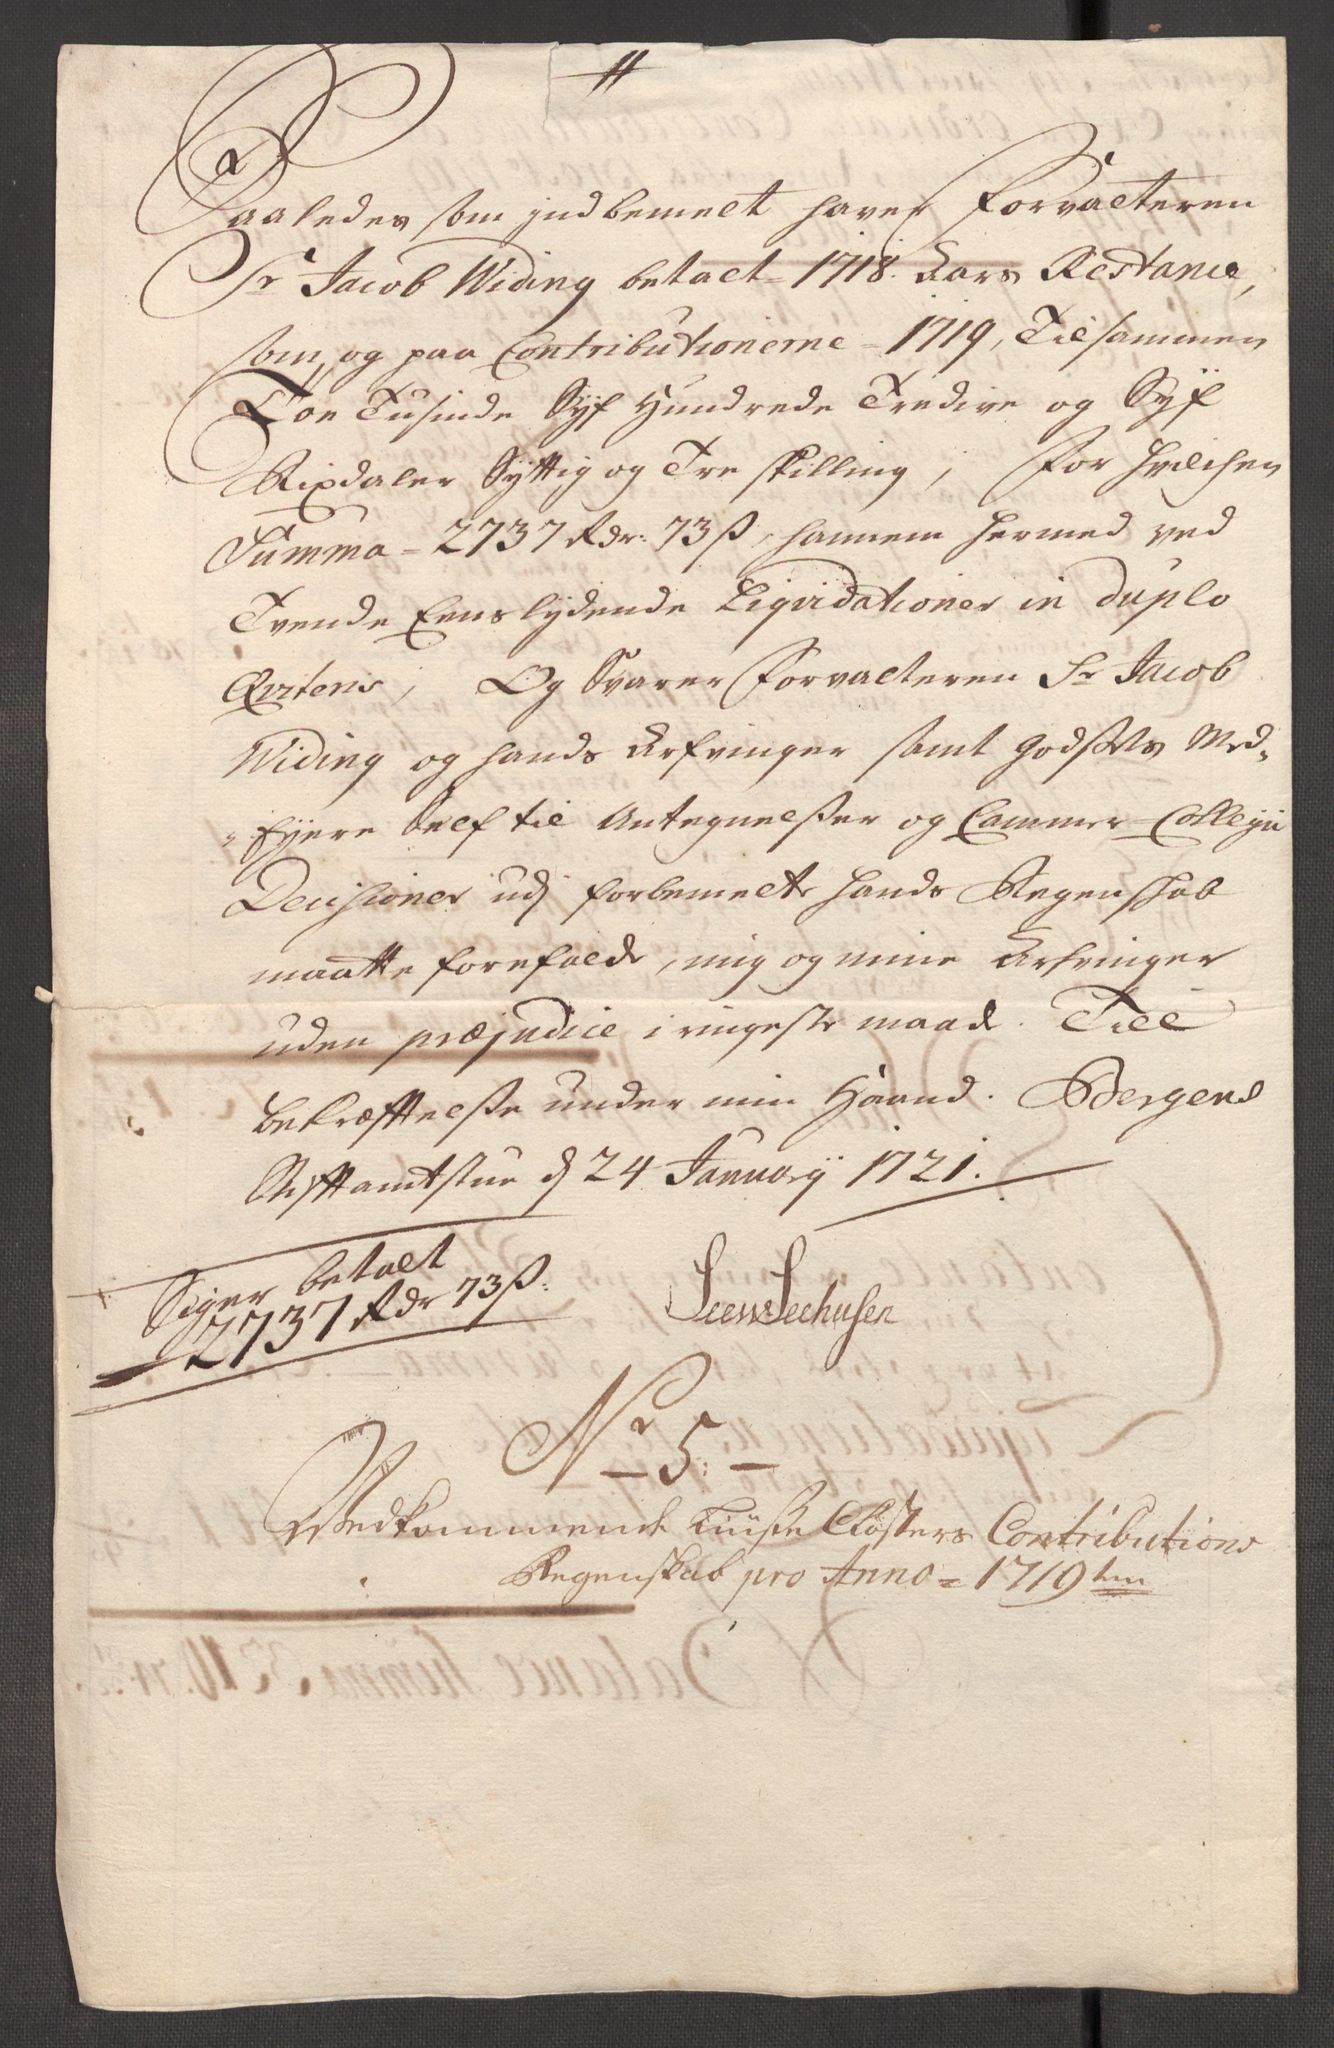 Saaledes som indbemelt haver Forvalteren
Sr Jacob Widing betalt 1718 Aars Restance,
som og paa Contributionerne 1719, Tilsammen
Toe Tusinde Syf Hundrede Tredive og Syf
Rixdaler Syttig og Tre skilling, For hvilchen
Summa 2737 Rdr: 73 ß, hannem hermed ved
Tvende Eenslydende Liqvidationer in duplo
Qviteris, Og Svarer Forvalteren Sr Jacob
Widing og hands Arfvinger samt Godsets Med-
Eyere Self til Antegnelßer og Cammer-Collegii
Decisioner udj forbemelte hands Regenskab
maatte forefalde, mig og mine Arfvinger
uden præjudice i ringeste maade. Till
bekræfftelße under min Haand. Bergens
Stifftamtstue d 24 Januarij 1721.
Siger betalt
2737 Rdr 73 ß.
Seehusen
No 5.
Vedkommende Liuße Closters Contributions
Regenskab pro Anno 1719